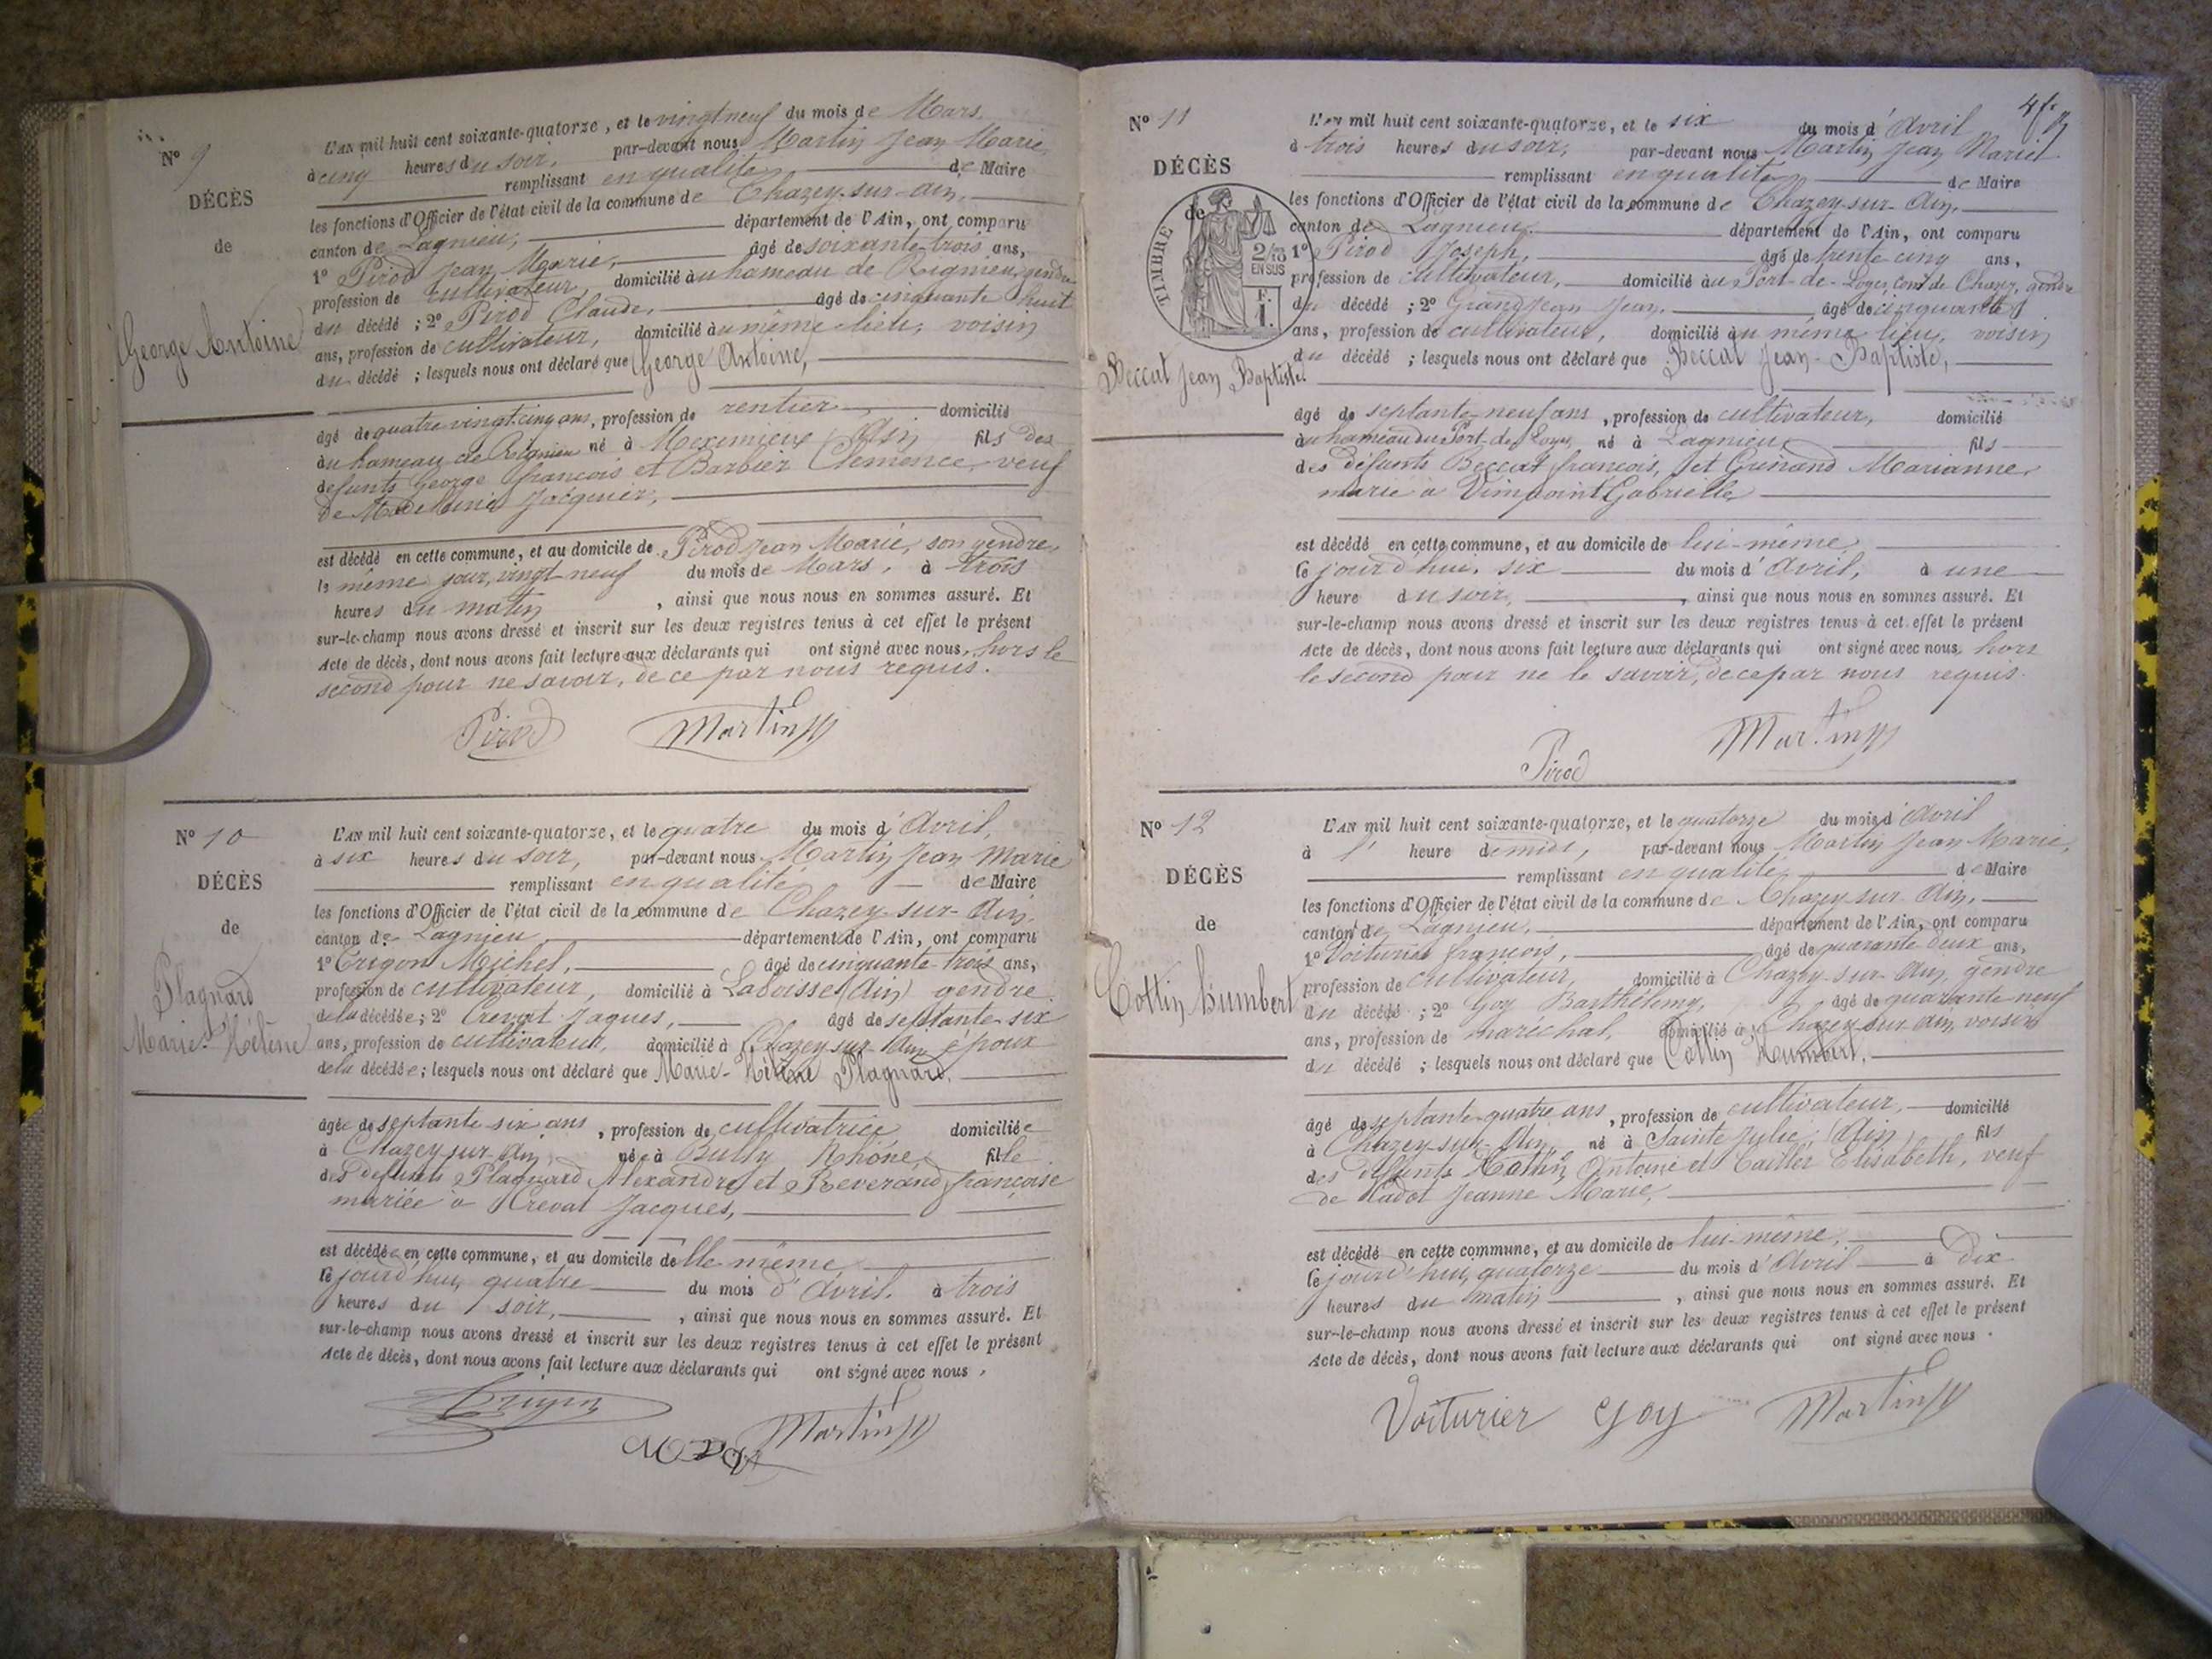 N° 9
DÉCÈS
de
George Antoine
L'AN mil huit cent soixante-quatorze, et le vingt neuf du mois de Mars
à cinq heures du soir, par-devant nous Martin Jean Marie
remplissant en qualité de Maire
les fonctions d'Officier de l'état civil de la commune de Chazey-sur-Ain,
canton de Lagnieu, département de l'Ain, ont comparu
1° Pirod Jean Marie, âgé de soixante trois ans,
profession de cultivateur, domicilié au hameau de Rignieu, gendre
du décédé ; 2° Pirod Claude, âgé de cinquante huit
ans, profession de cultivateur, domicilié au même lieu, voisin
du décédé ; lesquels nous ont déclaré que George Antoine,
âgé de quatre vingt cinq ans, profession de rentier domicilié
au hameau de Rignieu né à Meximieux (Ain) fils des
defunts George françois et Barbier Clemence, veuf
de Madeleine Jacquier,
est décédé en cette commune, et au domicile de Pirod Jean Marie, son gendre,
le même jour, vingt neuf du mois de Mars, à trois
heures du matin, ainsi que nous nous en sommes assuré. Et
sur-le-champ nous avons dressé et inscrit sur les deux registres tenus à cet effet le présent
Acte de décès, dont nous avons fait lecture aux déclarants qui ont signé avec nous, hors le
second pour ne savoir, de ce par nous requis.
Pirod Martin
N° 10
DÉCÈS
de
Plagnard
Marie-Hélène
L'AN mil huit cent soixante-quatorze, et le quatre du mois d'Avril,
à six heures du soir, par-devant nous Martin Jean Marie
remplissant en qualité de Maire
les fonctions d'Officier de l'état civil de la commune de Chazey-sur-Ain,
canton de Lagnieu, département de l'Ain, ont comparu
1° Trigon Michel, âgé de cinquante-trois ans,
profession de cultivateur, domicilié à Laboisse (Ain) gendre
de la décédée ; 2° Crevat Jaques, âgé de septante six
ans, profession de cultivateur, domicilié à Chazey sur Ain époux
de la décédée ; lesquels nous ont déclaré que Marie-Hélène Plagnard,
âgée de septante-six ans, profession de cultivatrice domiciliée
à Chazey sur Ain, née à Bully Rhône, fille
des defunts Plagnard Alexandre et Reverand françoise
mariée à Crevat Jacques,
est décédée en cette commune, et au domicile d'elle même
le jourd'hui quatre du mois d'Avril, à trois
heures du soir, ainsi que nous nous en sommes assuré. Et
sur-le-champ nous avons dressé et inscrit sur les deux registres tenus à cet effet le présent
Acte de décès, dont nous avons fait lecture aux déclarants qui ont signé avec nous.
Martin
N° 11
DÉCÈS
de
TIMBRE
2/10
EN SUS
F.
1.
Beccat Jean Baptiste
L'AN mil huit cent soixante-quatorze, et le six du mois d'Avril
à trois heures du soir, par-devant nous Martin Jean Marie
remplissant en qualité de Maire
les fonctions d'Officier de l'état civil de la commune de Chazey-sur-Ain,
canton de Lagnieu, département de l'Ain, ont comparu
1° Pirod Joseph, âgé de trente cinq ans,
profession de cultivateur, domicilié au Port-de-Loyes, con de Chazey, gendre
du décédé ; 2° Grandjean Jean, âgé de cinquante
ans, profession de cultivateur, domicilié au même lieu, voisin
du décédé ; lesquels nous ont déclaré que Beccat Jean-Baptiste,
âgé de septante-neuf ans, profession de cultivateur, domicilié
au hameau du Port-de-Loyes, né à Lagnieu fils
des défunts Beccat françois, et Guinand Marianne,
marié à Vimpoint Gabrielle
est décédé en cette commune, et au domicile de lui-même
le jourd'hui, six du mois d'Avril, à une
heure du soir, ainsi que nous nous en sommes assuré. Et
sur-le-champ nous avons dressé et inscrit sur les deux registres tenus à cet effet le présent
Acte de décès, dont nous avons fait lecture aux déclarants qui ont signé avec nous, hors
le second pour ne le savoir, de ce par nous requis.
Martin
Pirod
N° 12
DÉCÈS
de
Cottin humbert
L'AN mil huit cent soixante-quatorze, et le quatorze du mois d'Avril
à l' heure de midi, par-devant nous Martin Jean Marie,
remplissant en qualité de Maire
les fonctions d'Officier de l'état civil de la commune de Chazey sur-Ain,
canton de Lagnieu, département de l'Ain, ont comparu
1° Voiturier françois, âgé de quarante deux ans,
profession de cultivateur, domicilié à Chazey-sur-Ain, gendre
du décédé ; 2° Goy Barthélemy, âgé de quarante neuf
ans, profession de maréchal, domicilié à Chazey sur Ain, voisin
du décédé ; lesquels nous ont déclaré que Cottin Humbert,
âgé de septante-quatre ans, profession de cultivateur, domicilié
à Chazey-sur-Ain, né à Sainte Julie, (Ain) fils
des défunts Cottin Antoine et Cailler Elisabeth, veuf
de Jeanne Marie,
est décédé en cette commune, et au domicile de lui-même,
le jourd'hui, quatorze du mois d'Avril à dix
heures du matin, ainsi que nous nous en sommes assuré. Et
sur-le-champ nous avons dressé et inscrit sur les deux registres tenus à cet effet le présent
Acte de décès, dont nous avons fait lecture aux déclarants qui ont signé avec nous.
Voiturier Goy Martin